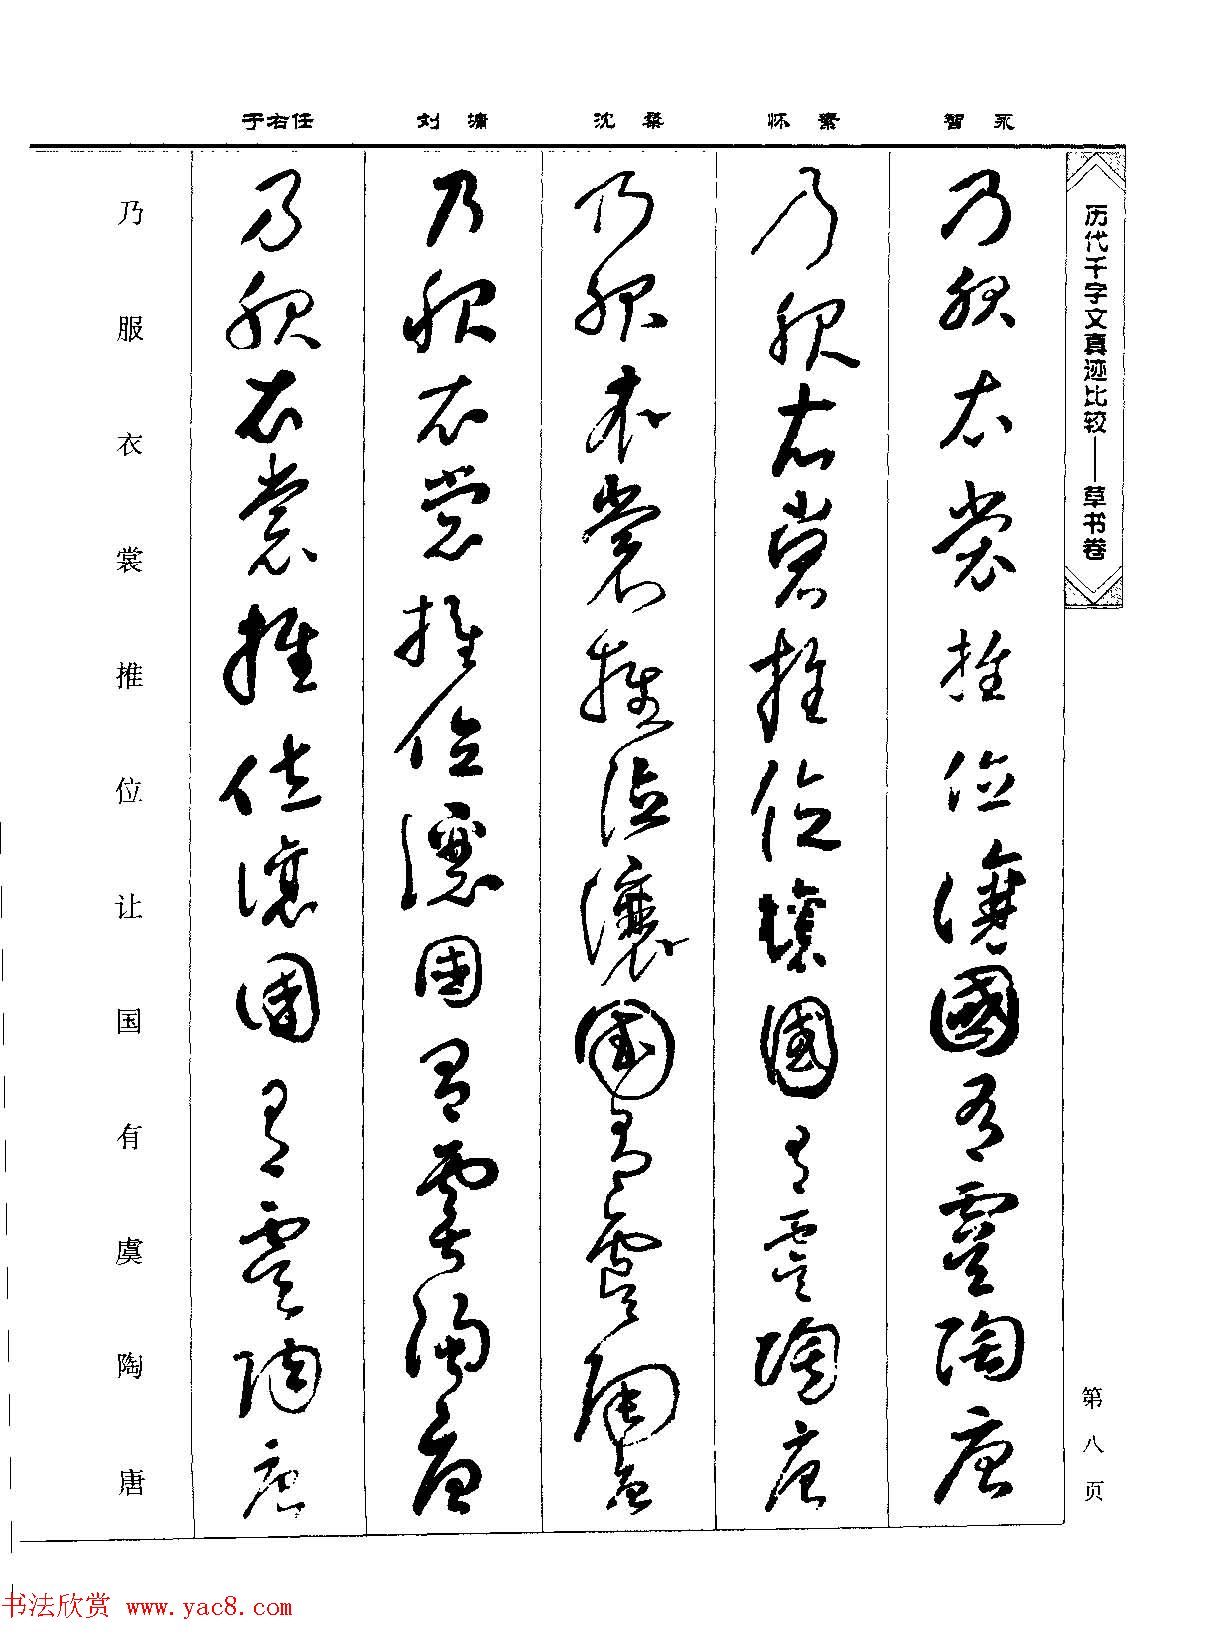 历代千字文真迹比较——草书卷
第八页
智永
怀素
沈粲
刘墉
于右任
乃服衣裳推位让国有虞陶唐
乃服衣裳推位让国有虞陶唐
乃服衣裳推位让国有虞陶唐
乃服衣裳推位让国有虞陶唐
乃服衣裳推位让国有虞陶唐
乃服衣裳推位让国有虞陶唐
书法欣赏 www.yac8.com